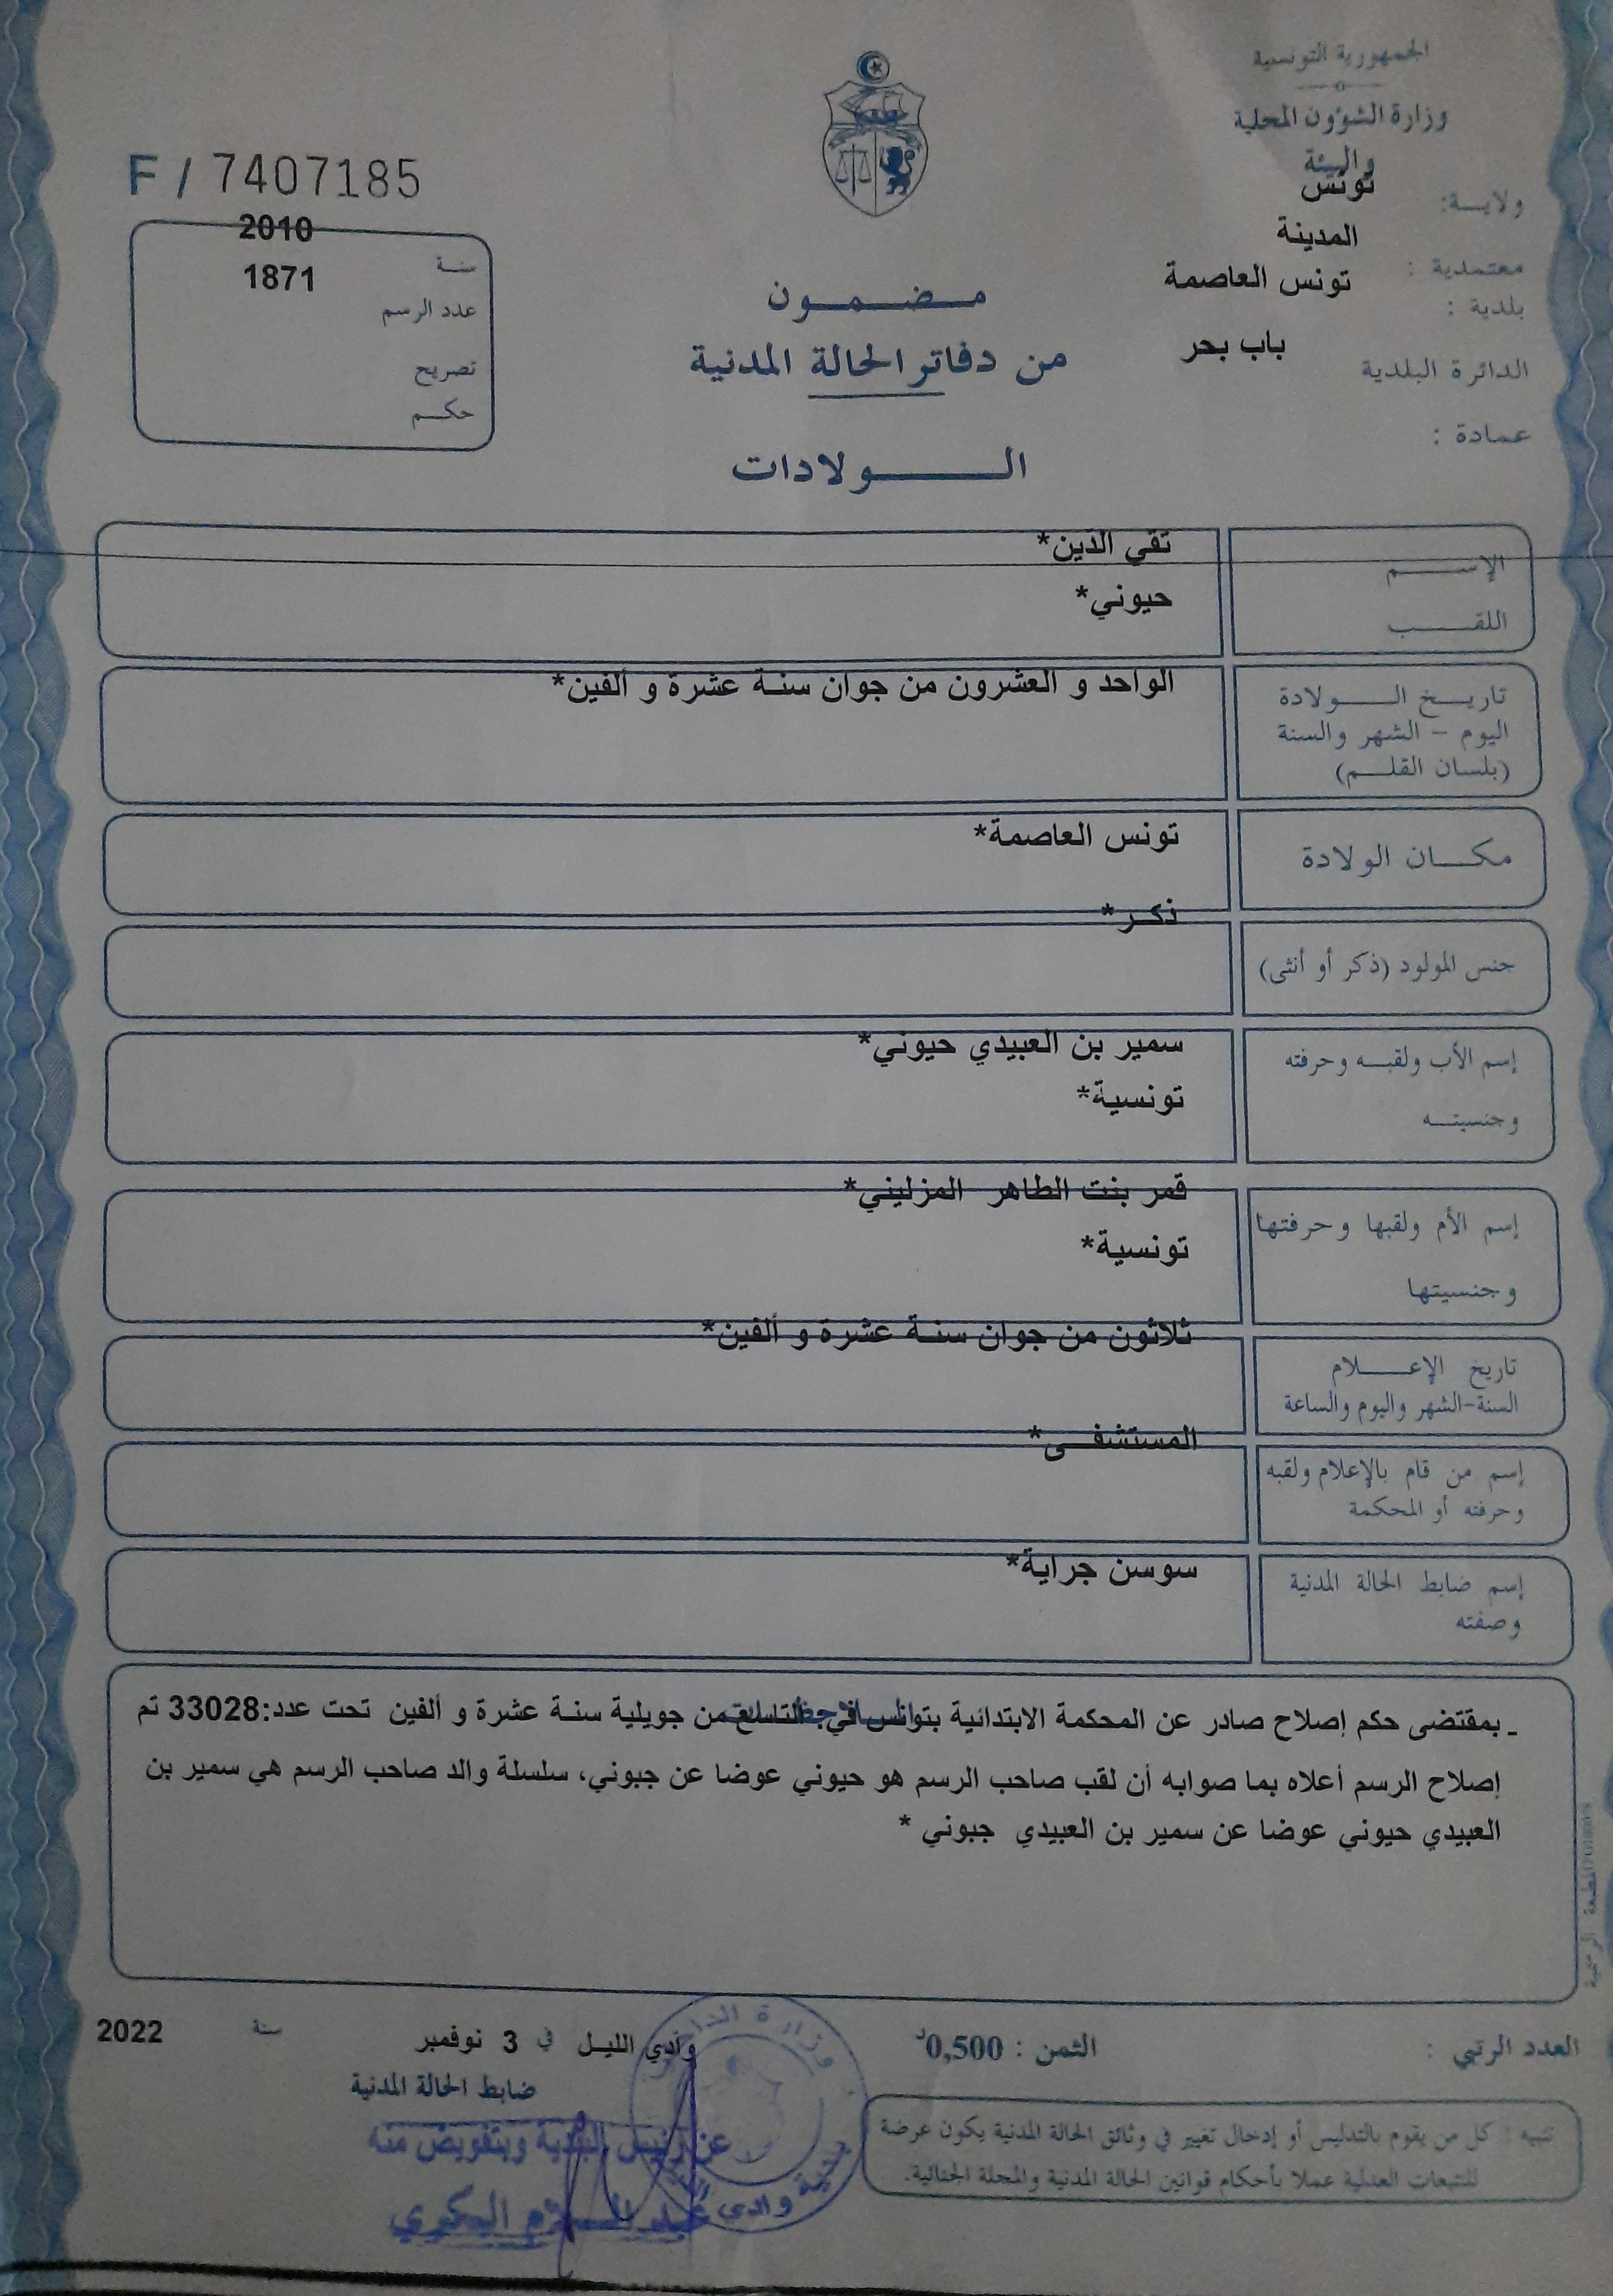 الجمهورية التونسية
وزارة الشؤون المحلية
والبيئة
ولايــة: تونس
معتمدية : المدينة
بلدية : تونس العاصمة
الدائرة البلدية باب بحر
عمادة :
F / 7407185
سنة 2010
عدد الرسم 1871
تصريح
حكم
مضمون
من دفاتر الحالة المدنية
الولادات
الإسم تقي الدين*
اللقب حيوني*
تاريخ الولادة الواحد و العشرون من جوان سنة عشرة و ألفين*
اليوم - الشهر والسنة
(بلسان القلم)
مكان الولادة تونس العاصمة*
جنس المولود (ذكر أو أنثى) ذكر*
إسم الأب ولقبه وحرفته سمير بن العبيدي حيوني*
وجنسيته تونسية*
إسم الأم ولقبها وحرفتها قمر بنت الطاهر المزليني*
وجنسيتها تونسية*
تاريخ الإعلام ثلاثون من جوان سنة عشرة و ألفين*
السنة-الشهر واليوم والساعة
إسم من قام بالإعلام ولقبه المستشفى*
وحرفته أو المحكمة
إسم ضابط الحالة المدنية سوسن جراية*
وصفته
ـ بمقتضى حكم إصلاح صادر عن المحكمة الابتدائية بتونس في التاسع من جويلية سنة عشرة و ألفين تحت عدد:33028 تم
إصلاح الرسم أعلاه بما صوابه أن لقب صاحب الرسم هو حيوني عوضا عن جبوني، سلسلة والد صاحب الرسم هي سمير بن
العبيدي حيوني عوضا عن سمير بن العبيدي جبوني *
العدد الرتبي :
الثمن : 0,500د
وادي الليل في 3 نوفمبر سنة 2022
ضابط الحالة المدنية
عن رئيس البلدية وبتفويض منه
تنبيه : كل من يقوم بالتدليس أو إدخال تغيير في وثائق الحالة المدنية يكون عرضة
للتتبعات العدلية عملا بأحكام قوانين الحالة المدنية والمجلة الجنائية.